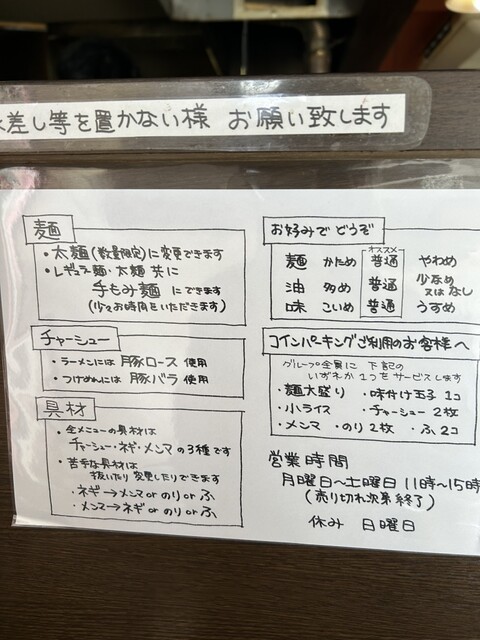 差し等を置かない様 お願い致します
麺
・太麺(数量限定)に変更できます
・レギュラー麺・太麺 共に
手もみ麺 にできます
(少々お時間をいただきます)
チャーシュー
・ラーメンには 豚ロース 使用
・つけめんには 豚バラ 使用
具材
・全メニューの具材は
チャーシュー・ネギ・メンマ の3種です
・苦手な具材は
抜いたり 変更したりできます
・ネギ→メンマ or のり or ふ
・メンマ→ネギ or のり or ふ
お好みで どうぞ
オススメ
麺 かため 普通 やわめ
油 多め 普通 少なめ
又は なし
味 こいめ 普通 うすめ
コインパーキングご利用のお客様へ
グループ全員に 下記の
いずれか 1つを サービスします
・麺大盛り ・味付け玉子 1コ
・小ライス ・チャーシュー 2枚
・メンマ ・のり 2枚 ・ふ 2コ
営業時間
月曜日〜土曜日 11時〜15時
(売り切れ次第終了)
休み 日曜日